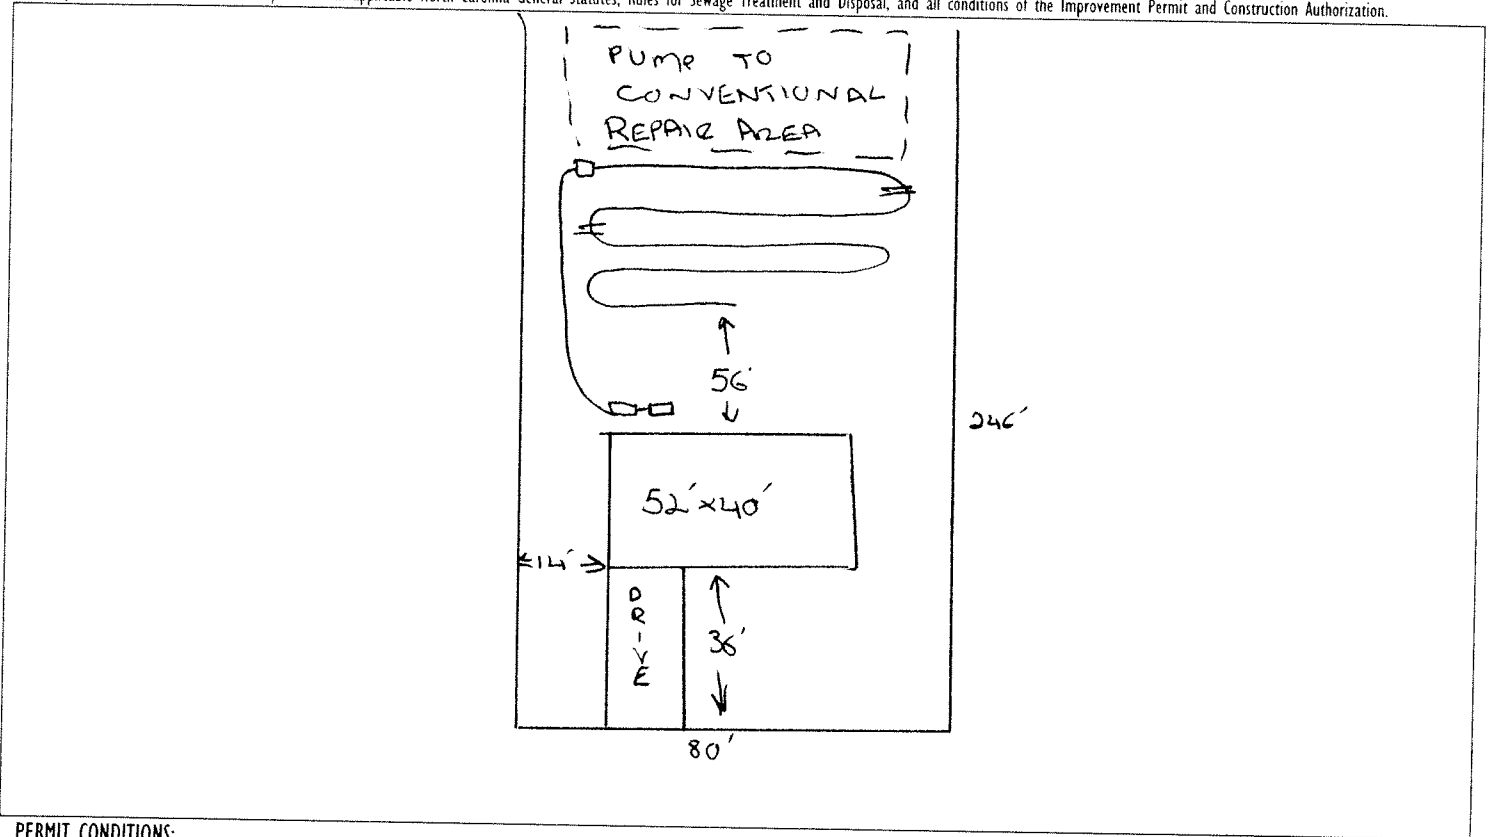 applicable North Carolina General Statutes, Rules for Sewage Treatment and Disposal, and all conditions of the Improvement Permit and Construction Authorization.
PUMP TO
CONVENTIONAL
REPAIR AREA
56'
246'
52'x40'
14'
DRIVE
36'
80'
PERMIT CONDITIONS: